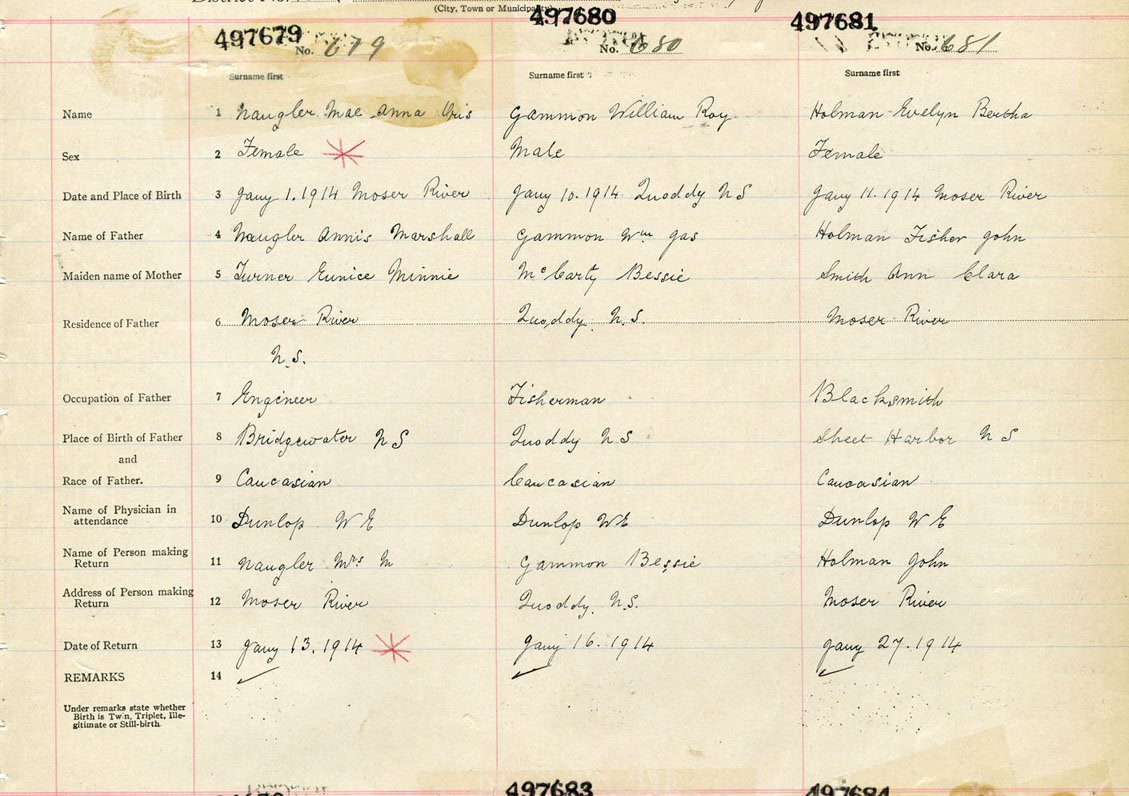 (City, Town or Municipality)
497679 497680 497681
No. 679 No. 680 No. 681
Surname first Surname first Surname first
Name 1 Naugler Mae Anna Gammon William Roy Holman Evelyn Bertha
Sex 2 Female Male Female
Date and Place of Birth 3 Jany 1. 1914 Moser River Jany 10. 1914 Quoddy N S Jany 11. 1914 Moser River
Name of Father 4 Naugler Annis Marshall Gammon Wm Jas Holman Fisher John
Maiden name of Mother 5 Turner Eunice Minnie McCarty Bessie Smith Ann Clara
Residence of Father 6 Moser River Quoddy N.S. Moser River
N.S.
Occupation of Father 7 Engineer Fisherman Blacksmith
Place of Birth of Father 8 Bridgewater N S Quoddy N S Sheet Harbor N S
and
Race of Father. 9 Caucasian Caucasian Caucasian
Name of Physician in
attendance 10 Dunlop W E Dunlop W E Dunlop W E
Name of Person making
Return 11 Naugler Mrs M Gammon Bessie Holman John
Address of Person making
Return 12 Moser River Quoddy N.S. Moser River
Date of Return 13 Jany 13. 1914 Jany 16. 1914 Jany 27. 1914
REMARKS 14
Under remarks state whether
Birth is Twin, Triplet, Ille-
gitimate or Still-birth.
497683 497684